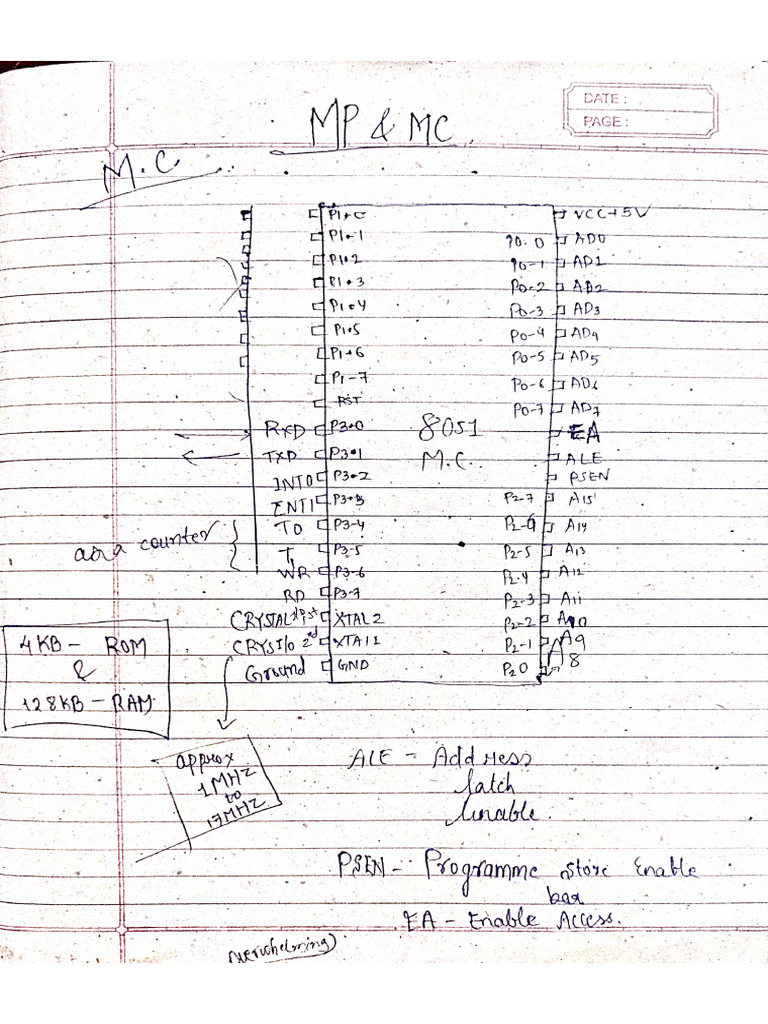 DATE :
PAGE :
MP & MC
M.C.
P1.0 VCC+5V
P1.1 P0.0 AD0
P1.2 P0-1 AD1
P1.3 P0-2 AD2
P1.4 P0-3 AD3
P1.5 P0-4 AD4
P1.6 P0-5 AD5
P1-7 P0-6 AD6
RST P0-7 AD7
RXD P3.0 8051 EA
TXD P3.1 M.C. ALE
INT0 P3.2 PSEN
ENT1 P3.3 P2-7 A15
as a counter T0 P3-4 P2-6 A14
T1 P3-5 P2-5 A13
WR P3-6 P2.4 A12
RD P3-7 P2-3 A11
CRYSTAL 1st XTAL2 P2-2 A10
CRYSI/O 2nd XTAL1 P2-1 A9
Ground GND P20 A8
4KB - ROM
&
128KB - RAM
approx
1MHZ
to
17MHZ
ALE - Address
latch
Enable.
PSEN - Programme store Enable
bar
EA - Enable Access.
overwhelming)